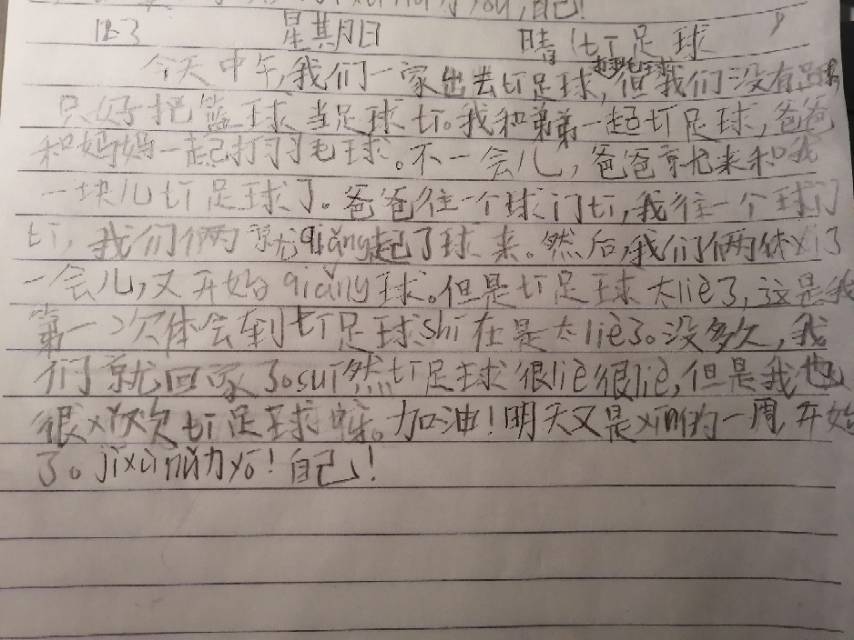 自己!
12.3 星期日 晴 tī足球
今天中午,我们一家出去tī足球,但我们没有足球
只好把篮球当足球tī。我和弟弟一起tī足球,爸爸
和妈妈一起打羽毛球。不一会儿,爸爸就来和我
一块儿tī足球了。爸爸往一个球门tī,我往一个球门
tī,我们俩就qiǎng起了球来。然后,我们俩休xi了
一会儿,又开始qiǎng球。但是tī足球太liè了,这是我
第一次体会到tī足球shí在是太liè了。没多久,我
们就回家了。suī然tī足球很liè很liè,但是我也
很xǐ欢tī足球。加油!明天又是xīn的一周,开始
了。jìxù nǔ力yō!自己!